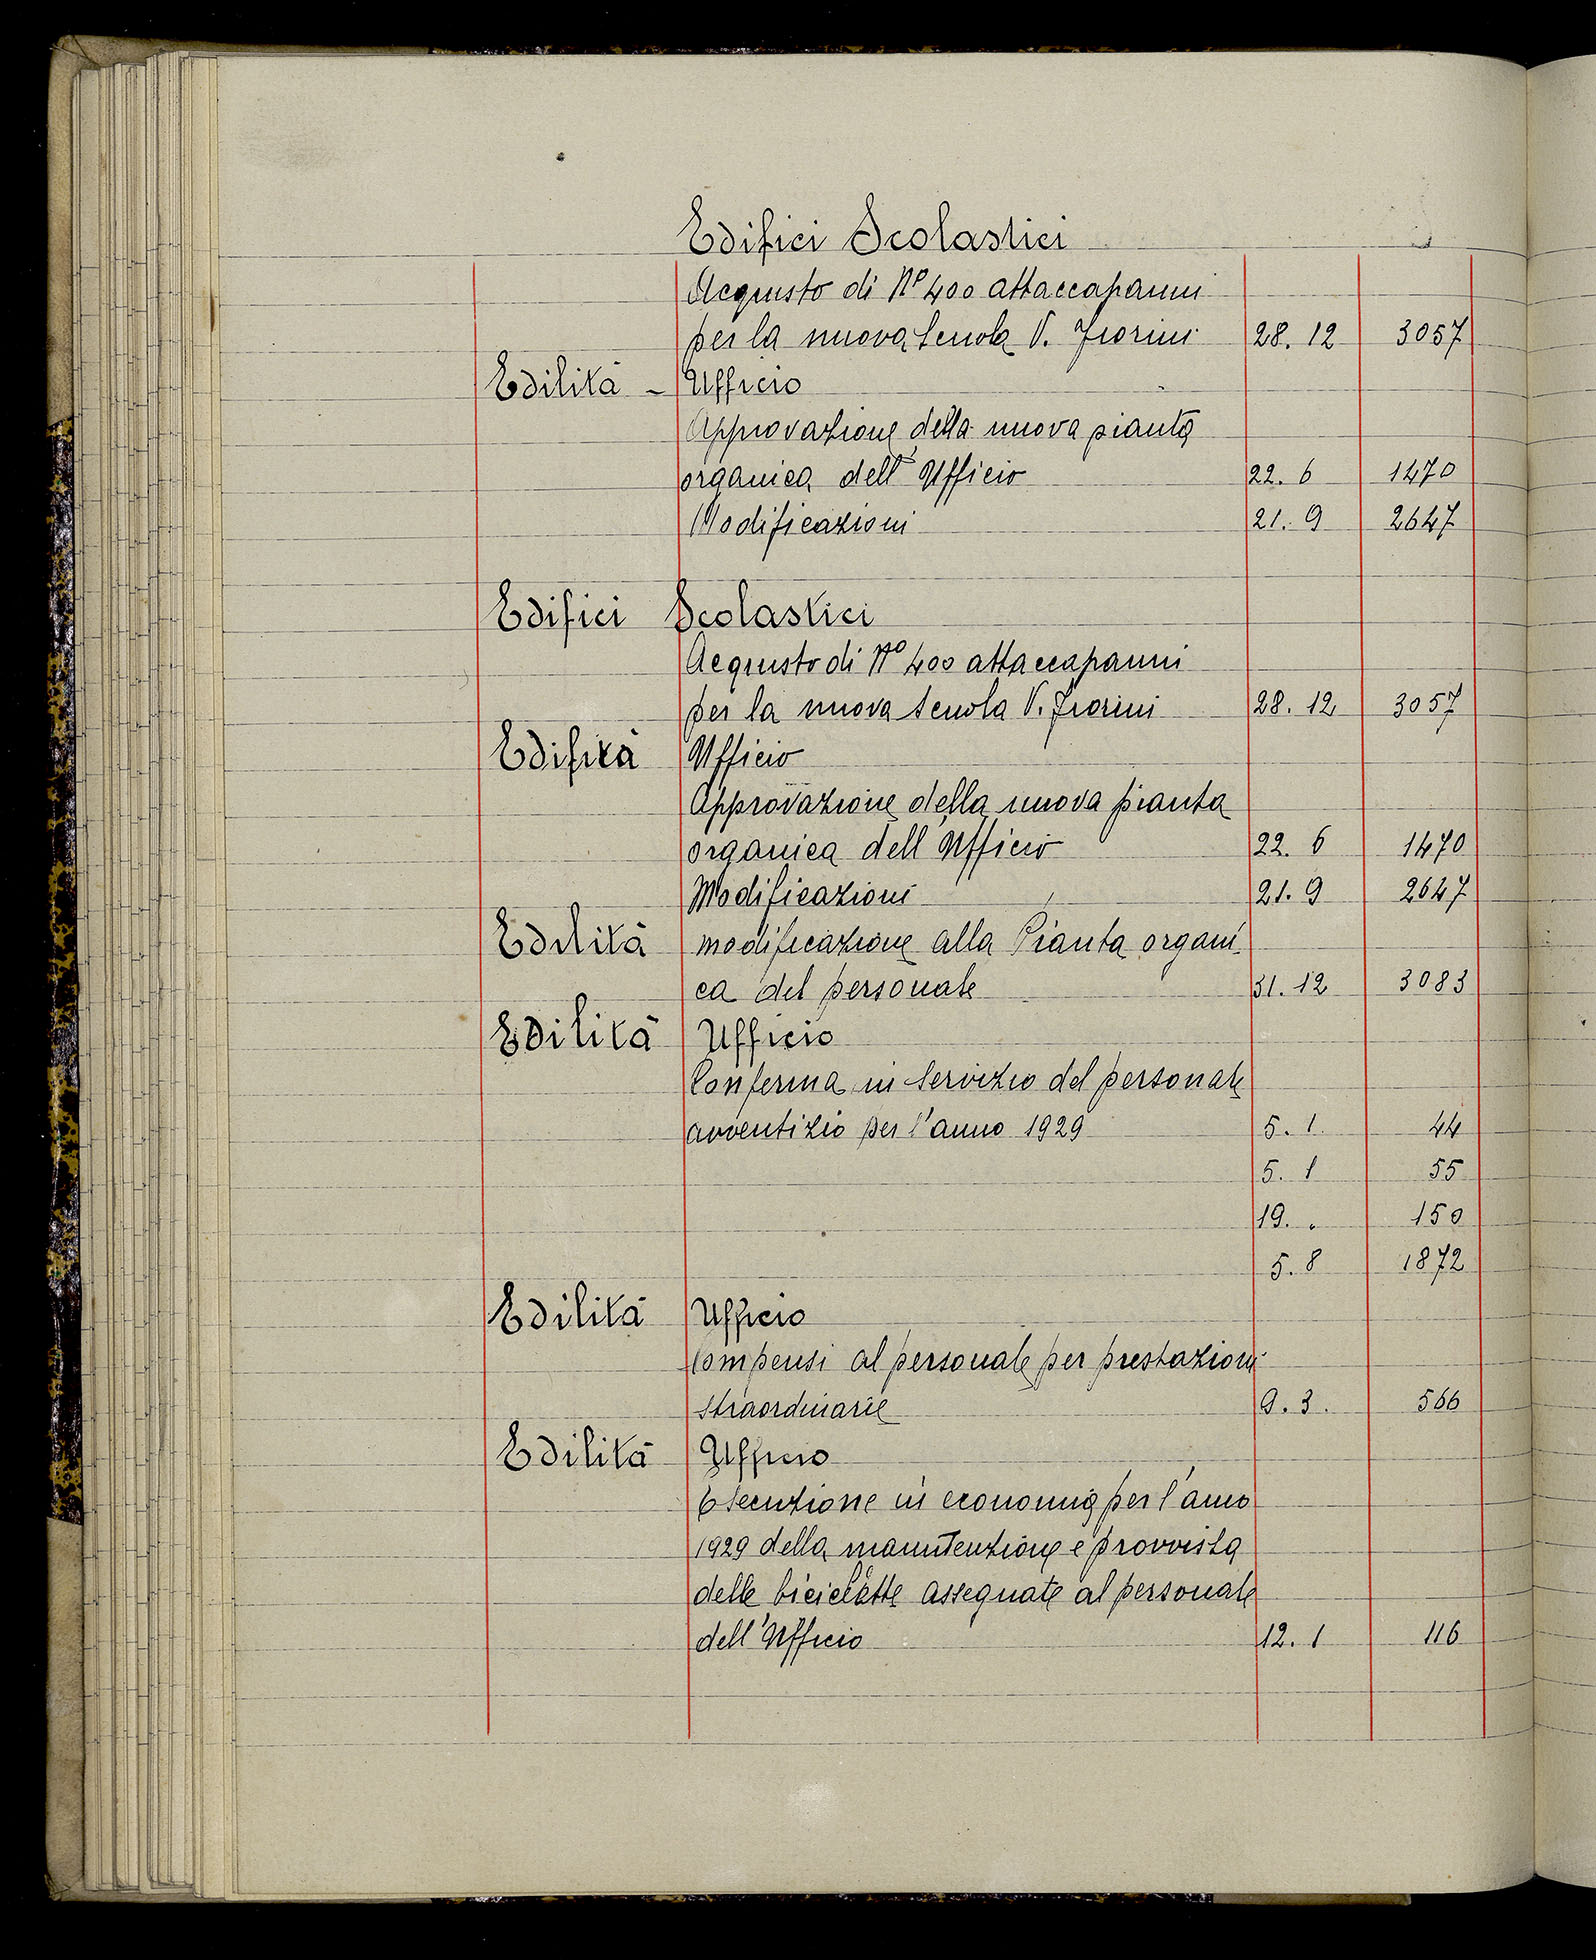 Edifici Scolastici
Acquisto di No 400 attaccapanni
per la nuova Scuola V. Fiorini 28. 12 3057
Edilità - Ufficio
Approvazione della nuova pianta
organica dell'Ufficio 22. 6 1470
Modificazioni 21. 9 2647
Edifici Scolastici
Acquisto di No 400 attaccapanni
per la nuova Scuola V. Fiorini 28. 12 3057
Edilità Ufficio
Approvazione della nuova pianta
organica dell Ufficio 22. 6 1470
Modificazioni 21. 9 2647
Edilità modificazione alla Pianta organi-
ca del personale 31. 12 3083
Edilità Ufficio
Conferma in Servizio del personale
avventizio per l'anno 1929 5. 1. 44
5. 1 55
19. " 150
5. 8 1872
Edilità Ufficio
Compensi al personale per prestazioni
straordinarie 9. 3. 566
Edilità Ufficio
Esecuzione in economia per l'anno
1929 della manutenzione e provvista
delle biciclette assegnate al personale
dell'Ufficio 12. 1 116